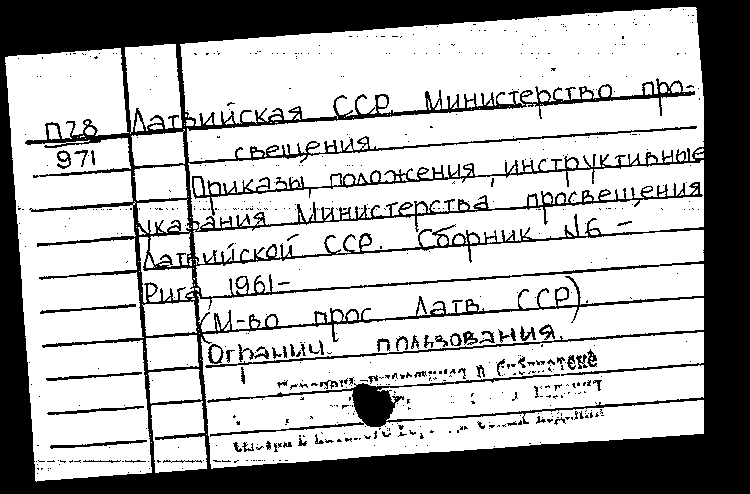 П28 Латвийская ССР. Министерство про-
971 свещения.
Приказы, положения, инструктивные
указания Министерства просвещения
Латвийской ССР. Сборник №6 -
Рига, 1961-
(М-во прос Латв. ССР).
Огранич. пользования.
в библиотеке
изданий